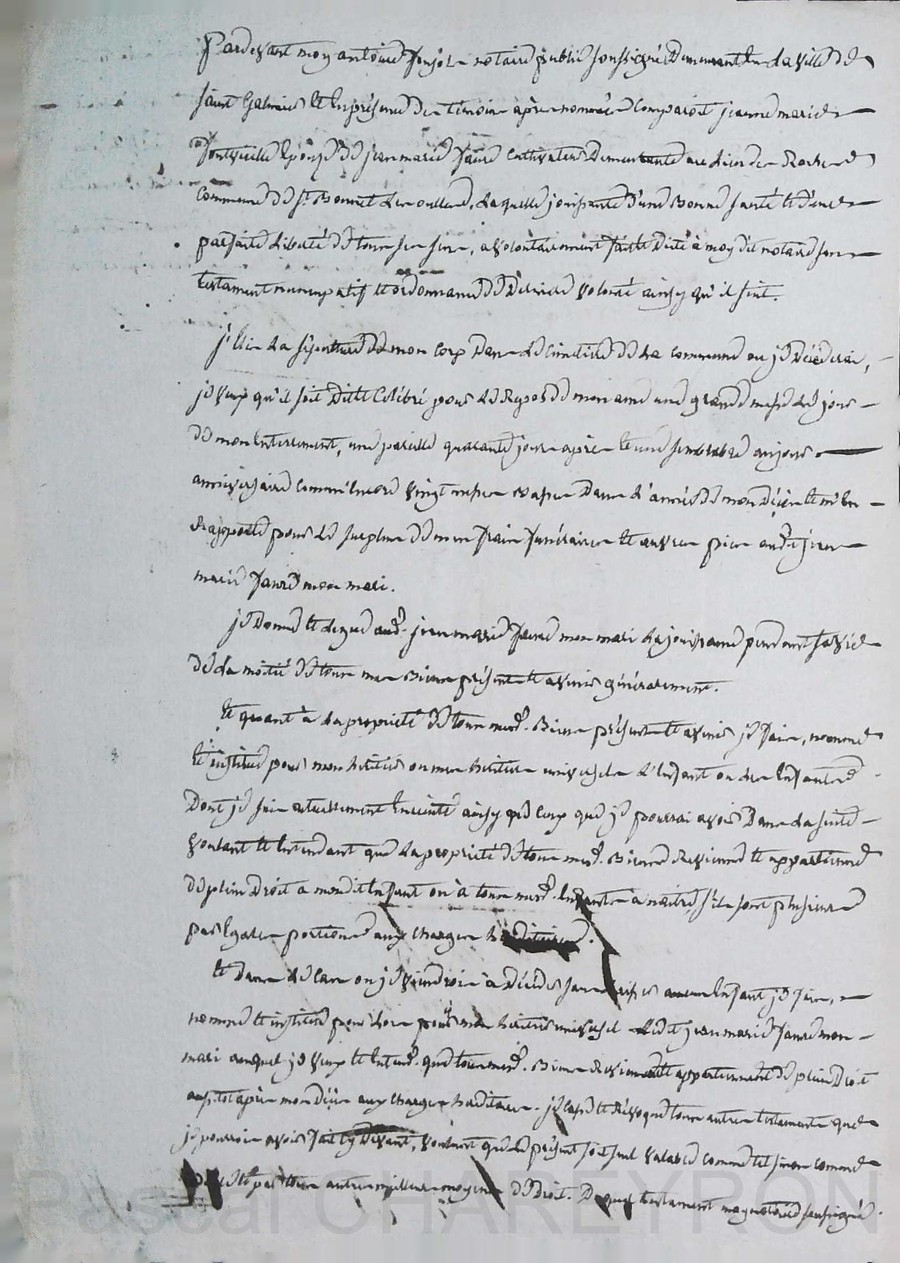 Pardevant moy antoine notaire public soussigné Demeurant En La ville de
saint Galmier Et En présence des témoins après nommés Comparoit jeanne marie
Epouse de jean marie faure Cultivateur Demeurante au Lieu des
Commune de St Bonnet Les oulles, Laquelle jouissante D'une Bonne santé Et D'une
parfaite Liberté de tous ses sens, a volontairement fait et Dicté à moy dit notaire son
testament nuncupatif Et ordonnance de Dernière volonté ainsy qu'il suit.
j'Elis La sépulture de mon Corp Dans Le Cimetière de La commune ou je Décéderai,
je veux qu'il soit Dit Et Célébré pour Le Repos de mon ame une grande messe Le jour
de mon Enterrement, une pareille quarante jours après Et une semblable au jour
anniversaire comme Encore vingt messes Basses Dans L'année de mon Décès Et m'En
Rapporte pour Le surplus de mes frais funéraires Et œuvres pies audit jean
marie faure mon mari.
je Donne Et Lègue aud. jean marie faure mon mari La jouissance pendant sa vie
de La moitié de tous mes Biens présents Et avenir généralement.
Et quant à La propriété de tous mesd. Biens présents Et avenir je fais, nomme
Et institue pour mon héritier ou mes héritiers universels L'Enfant ou Les Enfants
Dont je suis actuellement Enceinte ainsy que Ceux que je pourrai avoir Dans La suite
voulant Et Entendant que La propriété de tous mesd. Biens Revienne Et appartienne
de plein Droit a mondit Enfant ou à tous mesd. Enfants à naitre, s'ils sont plusieurs
par Egales portions aux charges héréditaires.
Et Dans Le Cas ou je viendrois à Décéder sans Laisser aucun Enfant je fais,
nomme Et institue pour Lors pour mon héritier universel Ledit jean marie faure mon
mari auquel je veux Et Entend. que tous mesd. Biens Reviennent Et appartiennent de plein Droit
aussitot après mon Décès aux charges héréditaires. je Casse Et Révoque tous autres testaments que
je pourrois avoir fait Cy Devant, voulant que Le présent soit seul valable comme tel sinon comme
Et par tous autres meilleurs moyens de Droit. Duquel testament moy notaire soussigné
Pascal CHAREYRON